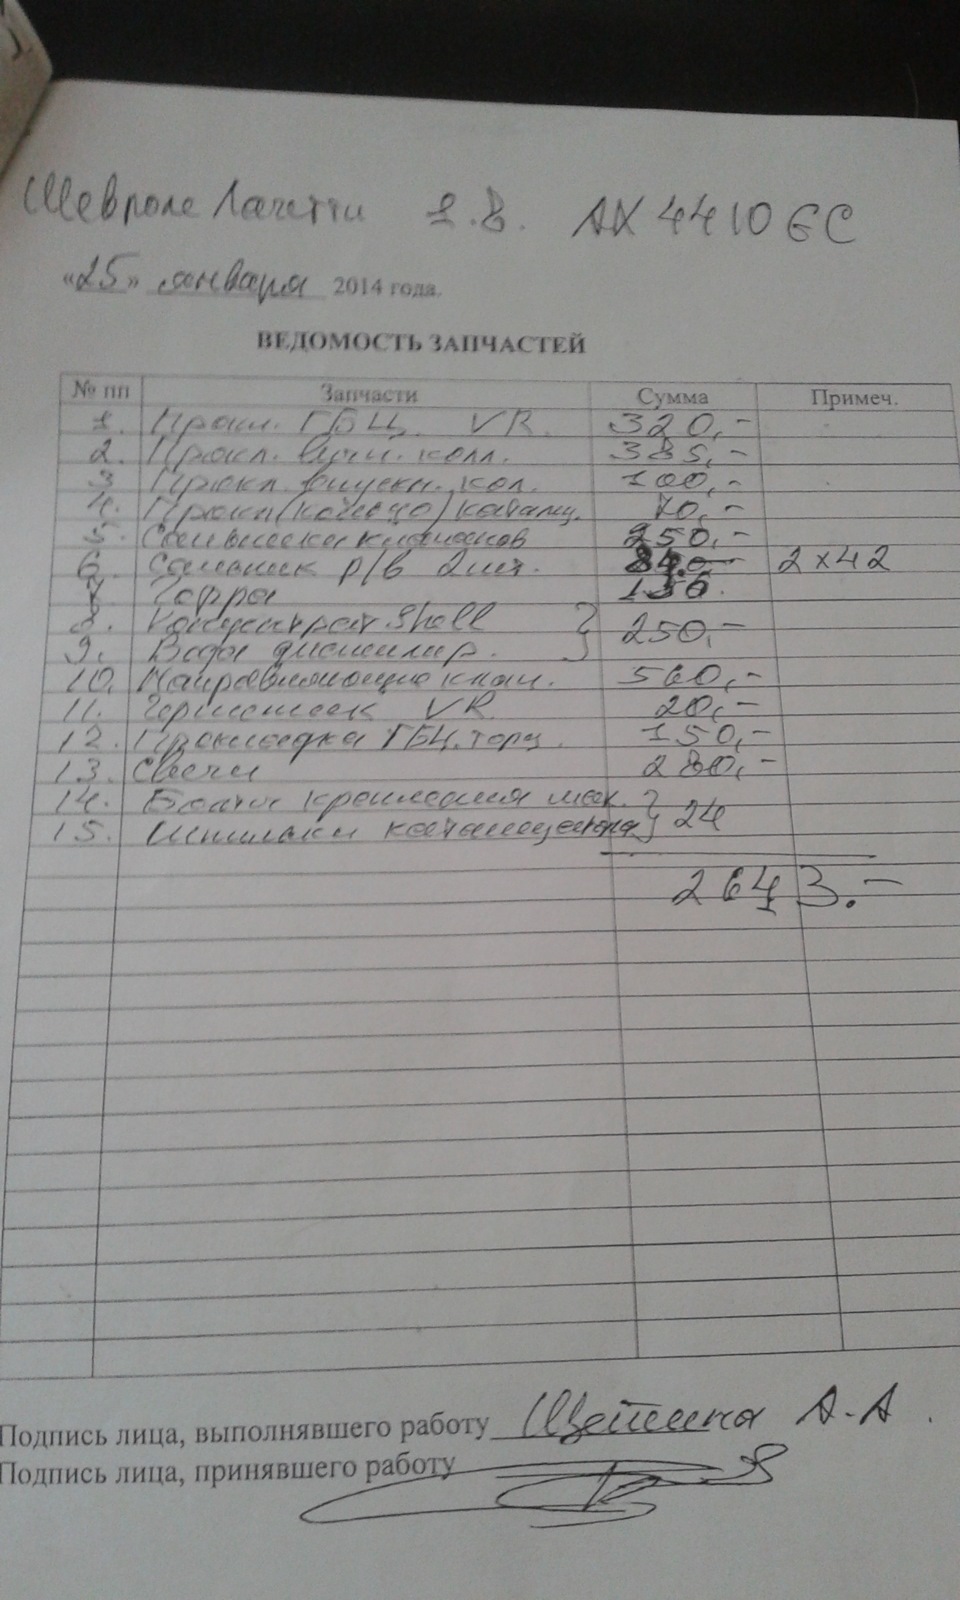 Шевроле Лачетти 1.8. АХ 4410 ЕС
«25» января 2014 года.
ВЕДОМОСТЬ ЗАПЧАСТЕЙ
№ пп Запчасти Сумма Примеч.
1. Прокл. ГБЦ. VR. 320,-
2. Прокл. впуч. колл. 385,-
3 Прокл. выпускн. кол. 100,-
4. Прокл (кольцо) катализ. 70,-
5. Сальники клапанов 250,-
6. Сальник р/в 2шт. 84.- 2х42
7. Гофра 150.
8. Концентрат Shell } 250,-
9. Вода дистилир.
10. Направляющие клап. 560,-
11. Герметик VR 20,-
12. Прокладка ГБЦ. торц. 150,-
13. Свечи 280,-
14. Болты крепления мех. } 24
15. Шпильки катализатора
2643.-
Подпись лица, выполнявшего работу Щетинка А.А.
Подпись лица, принявшего работу